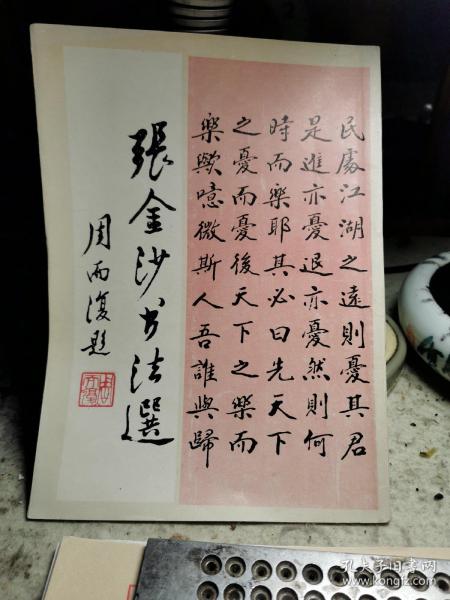 民處江湖之遠則憂其君
是進亦憂退亦憂然則何
時而樂耶其必曰先天下
之憂而憂後天下之樂而
樂歟噫微斯人吾誰與歸
張金沙书法選
周而復題
孔夫子旧书网
www.kongfz.com